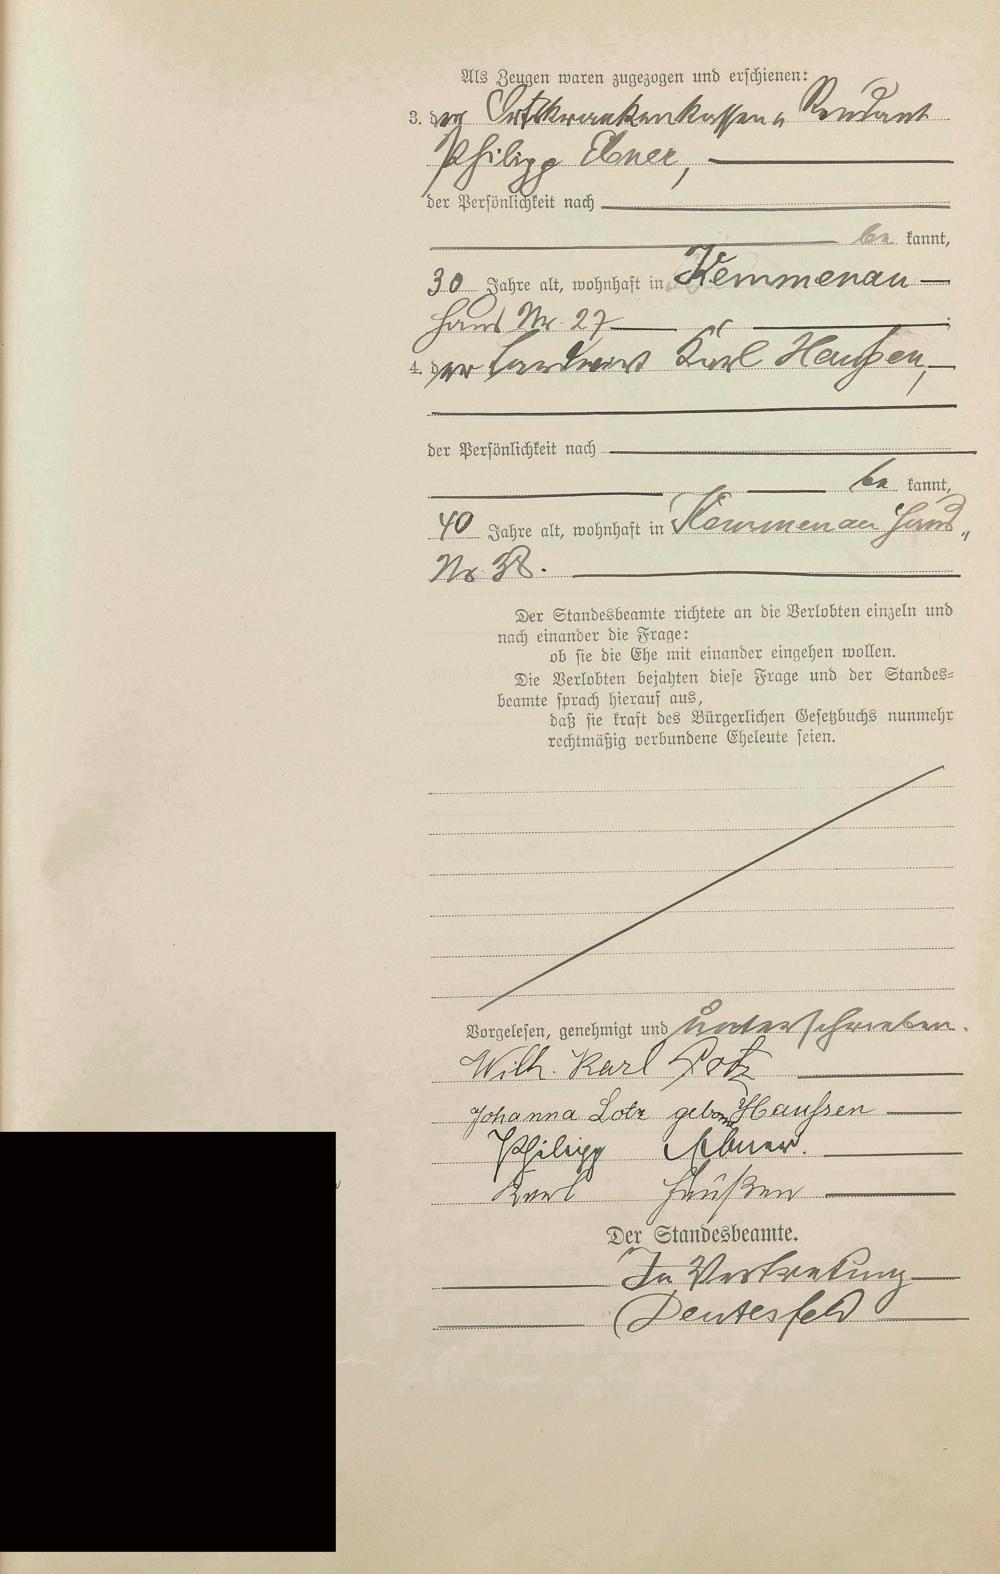 Als Zeugen waren zugezogen und erschienen:
3. der Ortskrankenkassen„ Rendant
Philipp Ebner,
der Persönlichkeit nach
be kannt,
30 Jahre alt, wohnhaft in Kemmenau
Haus Nr. 27
4. der Landwirt Karl Haußen,
der Persönlichkeit nach
be kannt,
40 Jahre alt, wohnhaft in Kemmenau Haus„
Nr. 38.
Der Standesbeamte richtete an die Verlobten einzeln und
nach einander die Frage:
ob sie die Ehe mit einander eingehen wollen.
Die Verlobten bejahten diese Frage und der Standes=
beamte sprach hierauf aus,
daß sie kraft des Bürgerlichen Gesetzbuchs nunmehr
rechtmäßig verbundene Eheleute seien.
Vorgelesen, genehmigt und unterschrieben.
Wilh. Karl Lotz
Johanna Lotz geborne Haußen
Philipp Ebner.
Karl Haußen
Der Standesbeamte.
In Vertretung
Deutesfeld